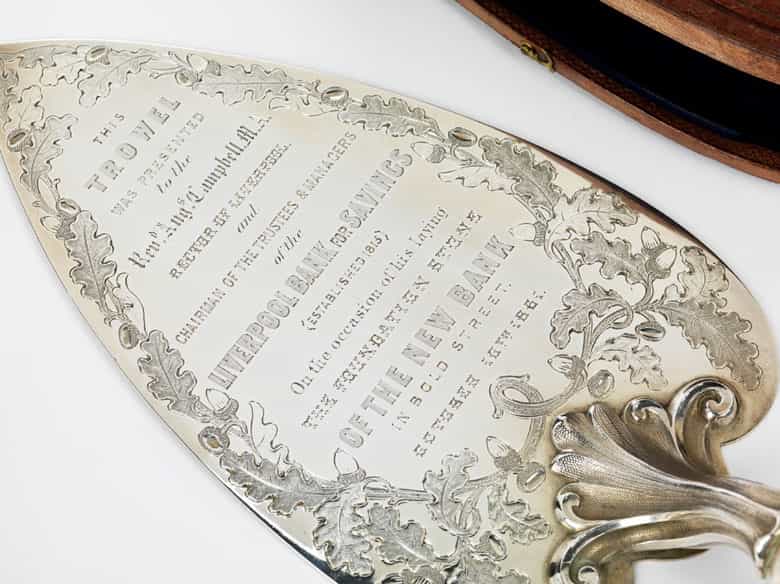 THIS
TROWEL
WAS PRESENTED
to the
Revd. Angs. Campbell, M.A.
RECTOR OF LIVERPOOL.
and
CHAIRMAN OF THE TRUSTEES & MANAGERS
of the
LIVERPOOL BANK FOR SAVINGS
(ESTABLISHED 1815)
On the occasion of his laying
THE FOUNDATION STONE
OF THE NEW BANK
IN BOLD STREET.
OCTOBER 16TH. 1861.